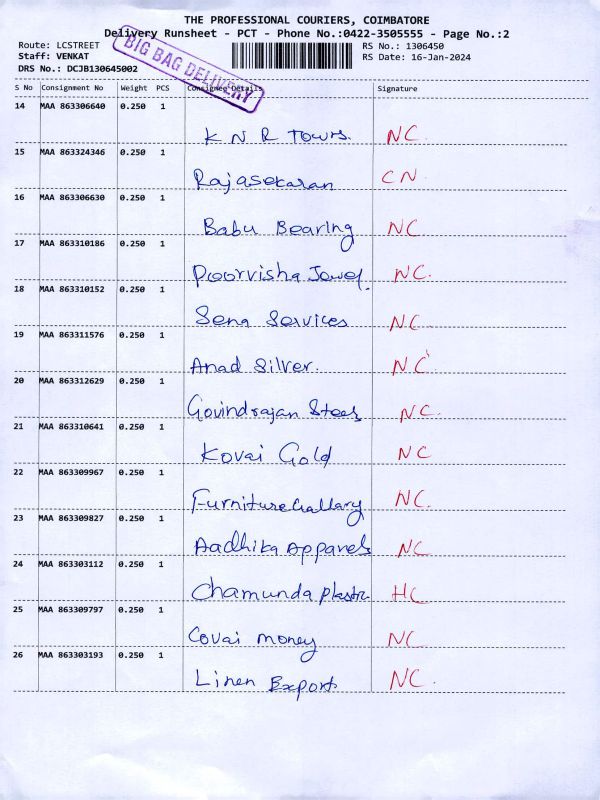 THE PROFESSIONAL COURIERS, COIMBATORE
Delivery Runsheet - PCT - Phone No.:0422-3505555 - Page No.:2
Route: LCSTREET RS No.: 1306450
Staff: VENKAT RS Date: 16-Jan-2024
DRS No.: DCJB130645002
BIG BAG DELIVERY
S No Consignment No Weight PCS Consignee Details Signature
14 MAA 863306640 0.250 1
K N R Tours. NC.
15 MAA 863324346 0.250 1
Rajasekaran CN.
16 MAA 863306630 0.250 1
Babu Bearing NC.
17 MAA 863310186 0.250 1
Poorvisha Jewel. NC.
18 MAA 863310152 0.250 1
Sena Services NC.
19 MAA 863311576 0.250 1
Anad Silver. NC
20 MAA 863312629 0.250 1
Govindrajan Stees NC.
21 MAA 863310641 0.250 1
Kovai Gold NC
22 MAA 863309967 0.250 1
Furniture Gallary NC.
23 MAA 863309827 0.250 1
Aadhika Apparels NC
24 MAA 863303112 0.250 1
Chamunda plastic HC
25 MAA 863309797 0.250 1
Covai money NC
26 MAA 863303193 0.250 1
Linen Export NC.